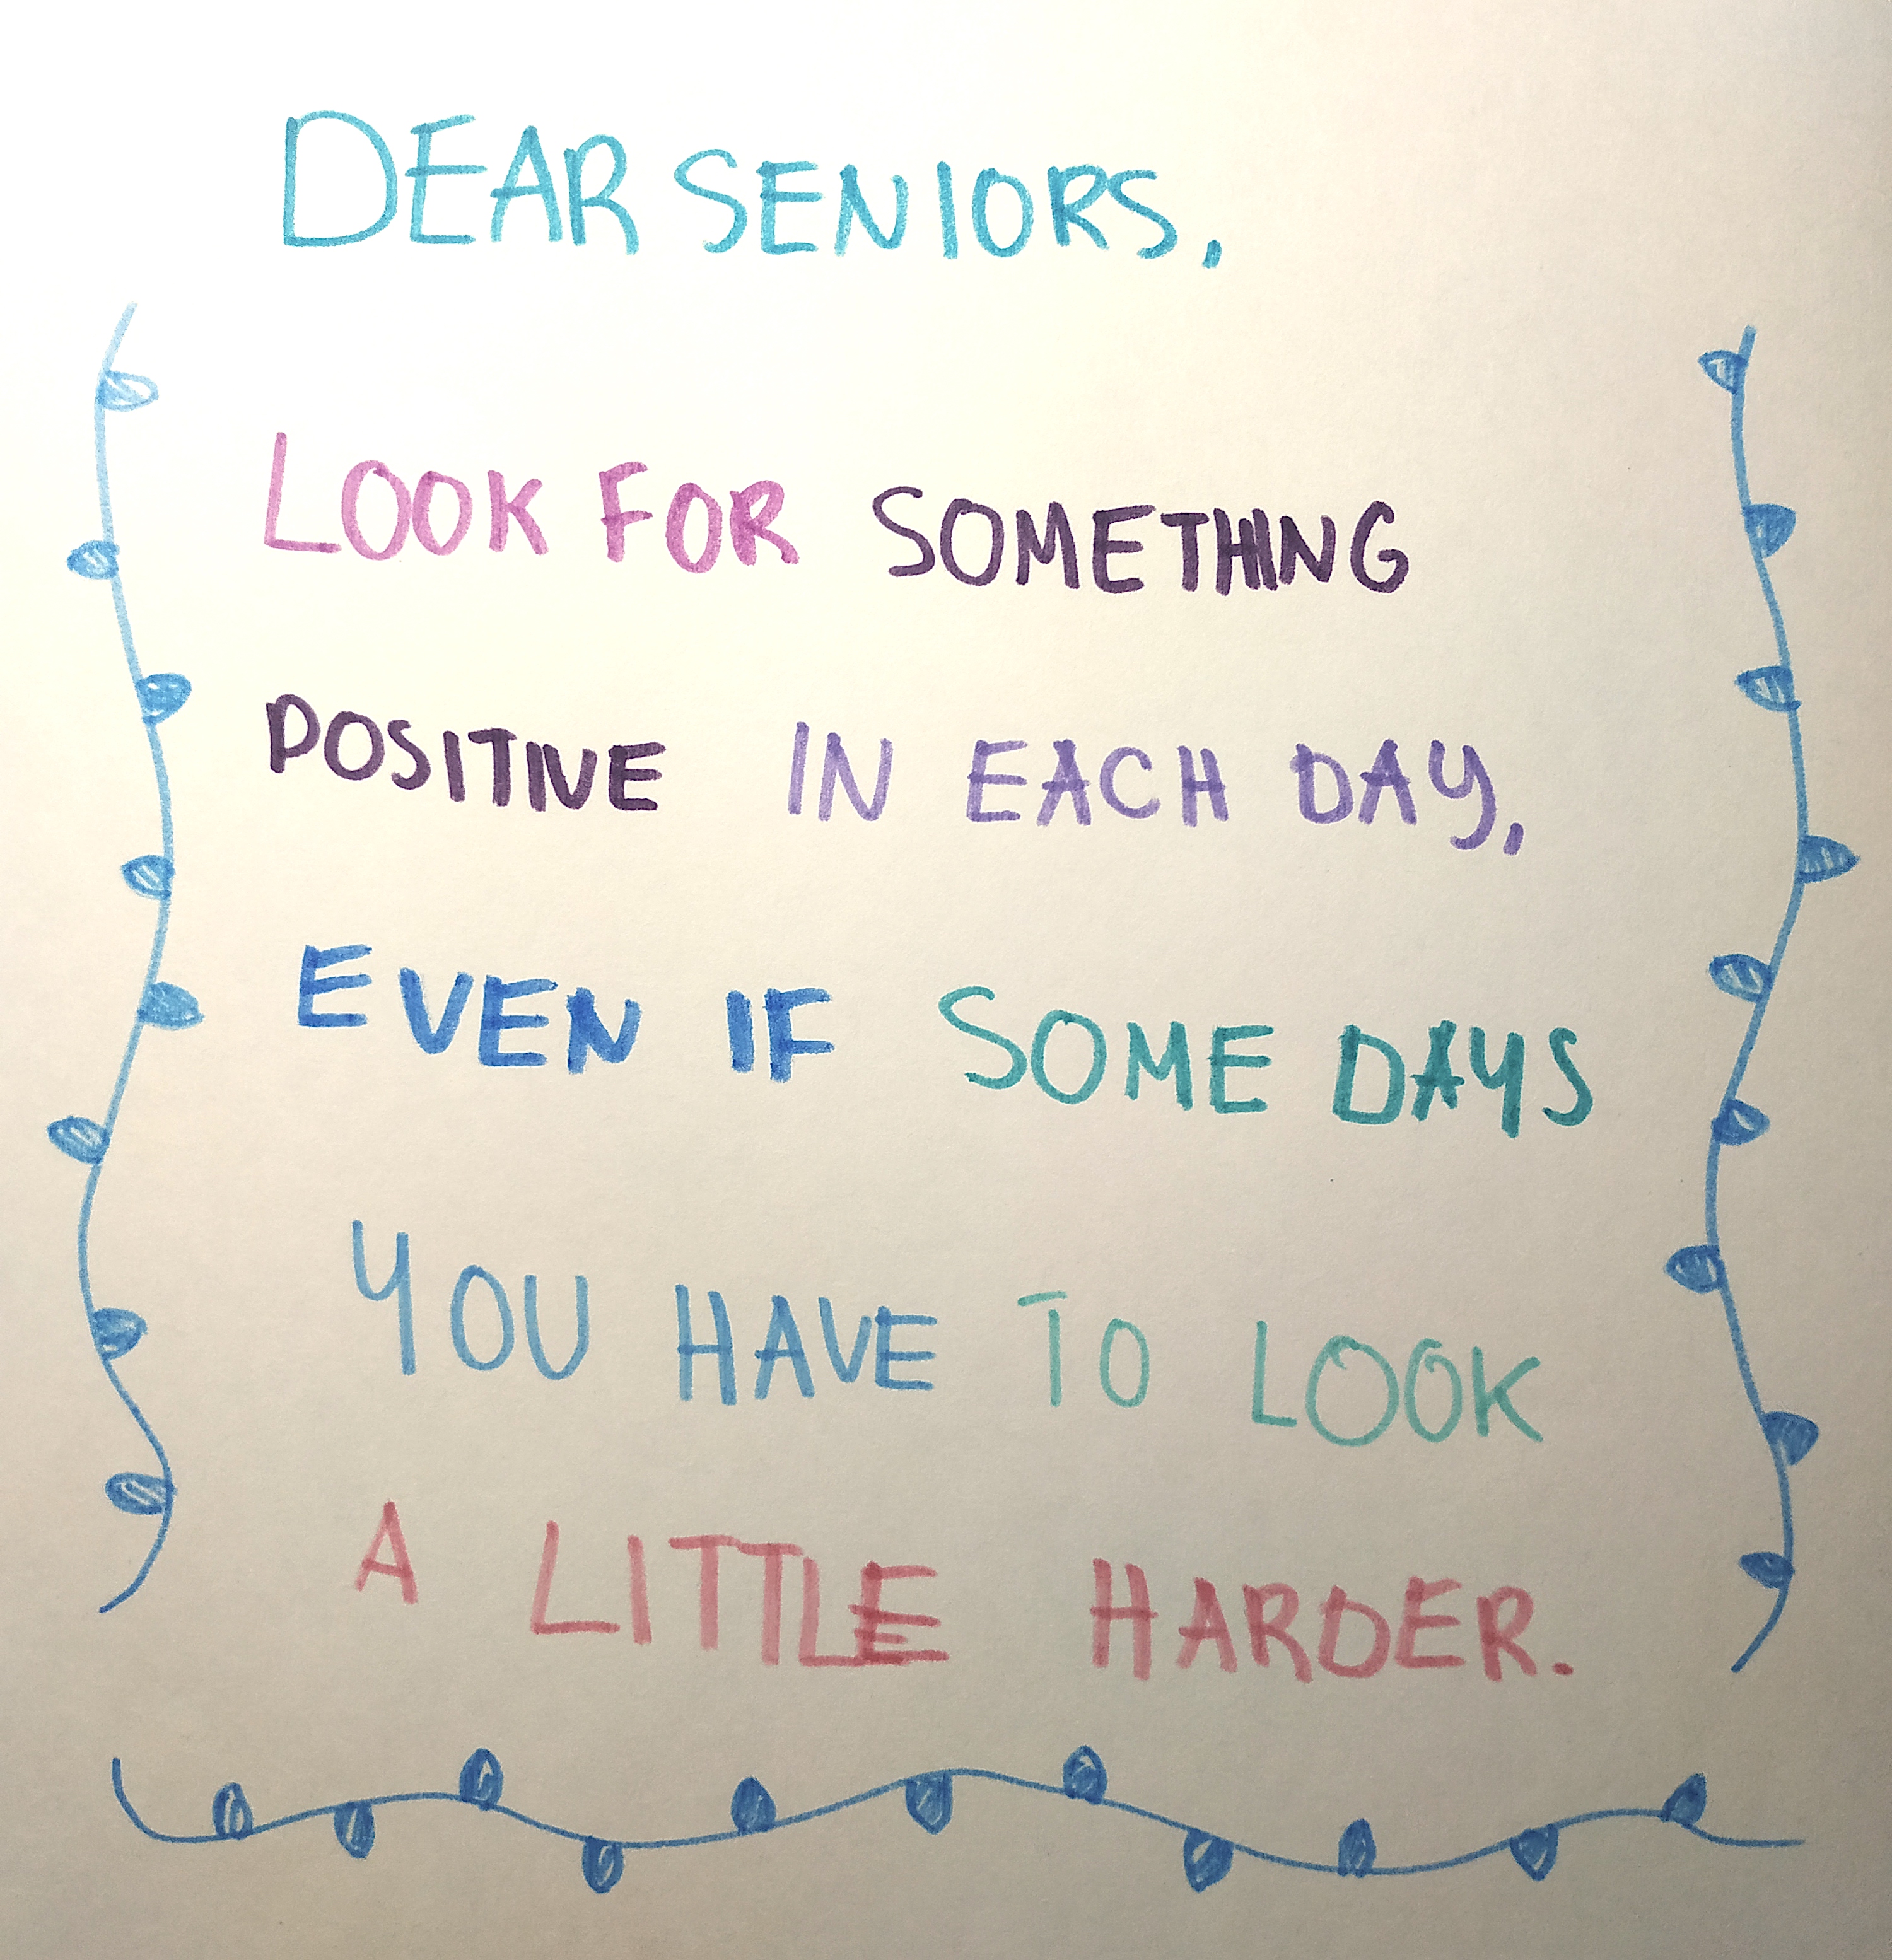 DEAR SENIORS,
LOOK FOR SOMETHING
POSITIVE IN EACH DAY,
EVEN IF SOME DAYS
YOU HAVE TO LOOK
A LITTLE HARDER.